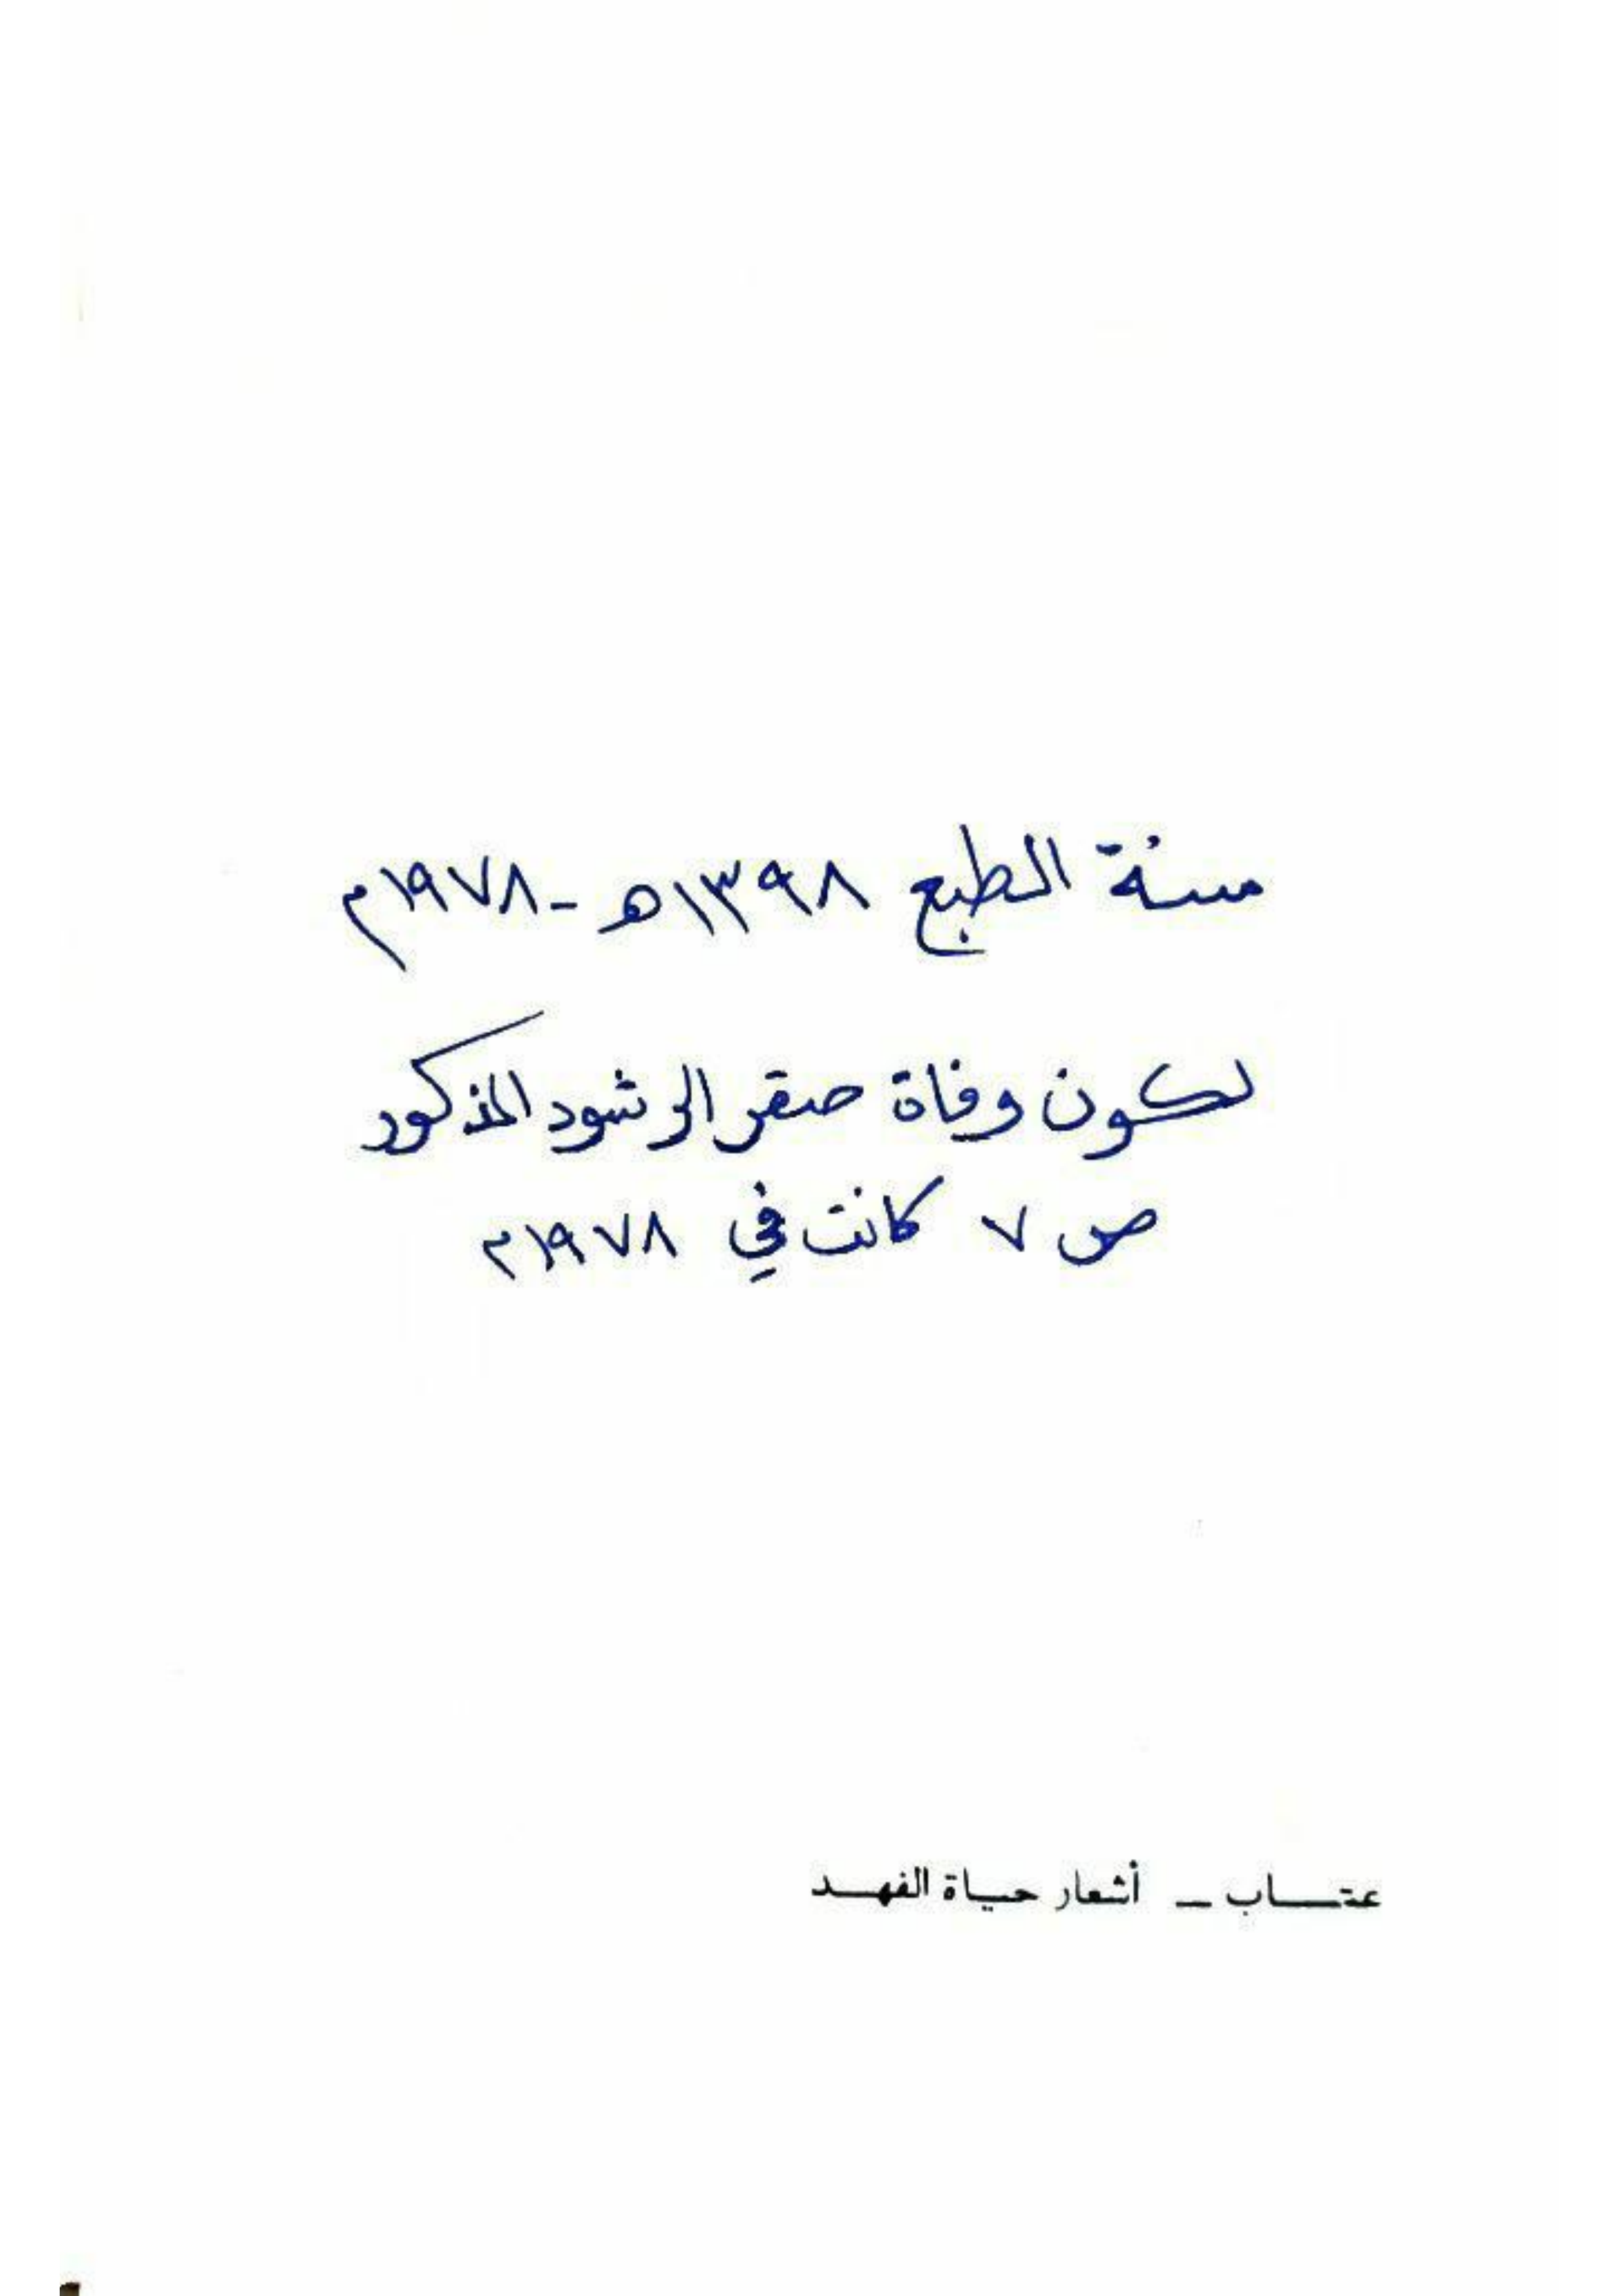 سنة الطبع ١٣٩٨هـ - ١٩٧٨م
لكون وفاة صقر الرشود المذكور
ص ٧ كانت في ١٩٧٨م
عتـــاب ــ أشعار حيـاة الفهـــد